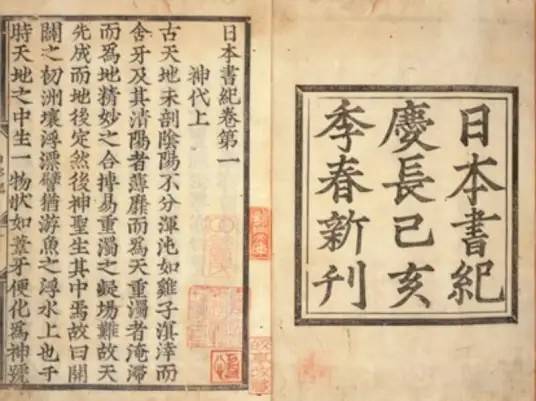 日本書紀
慶長己亥
季春新刊
日本書紀卷第一
神代上
古天地未剖陰陽不分渾沌如雞子溟涬而
含牙及其清陽者薄靡而爲天重濁者淹滞
而爲地精妙之合摶易重濁之凝場難故天
先成而地後定然後神聖生其中焉故曰開
闢之初洲壤浮漂譬猶游魚之浮水上也于
時天地之中生一物狀如葦牙便化爲神號